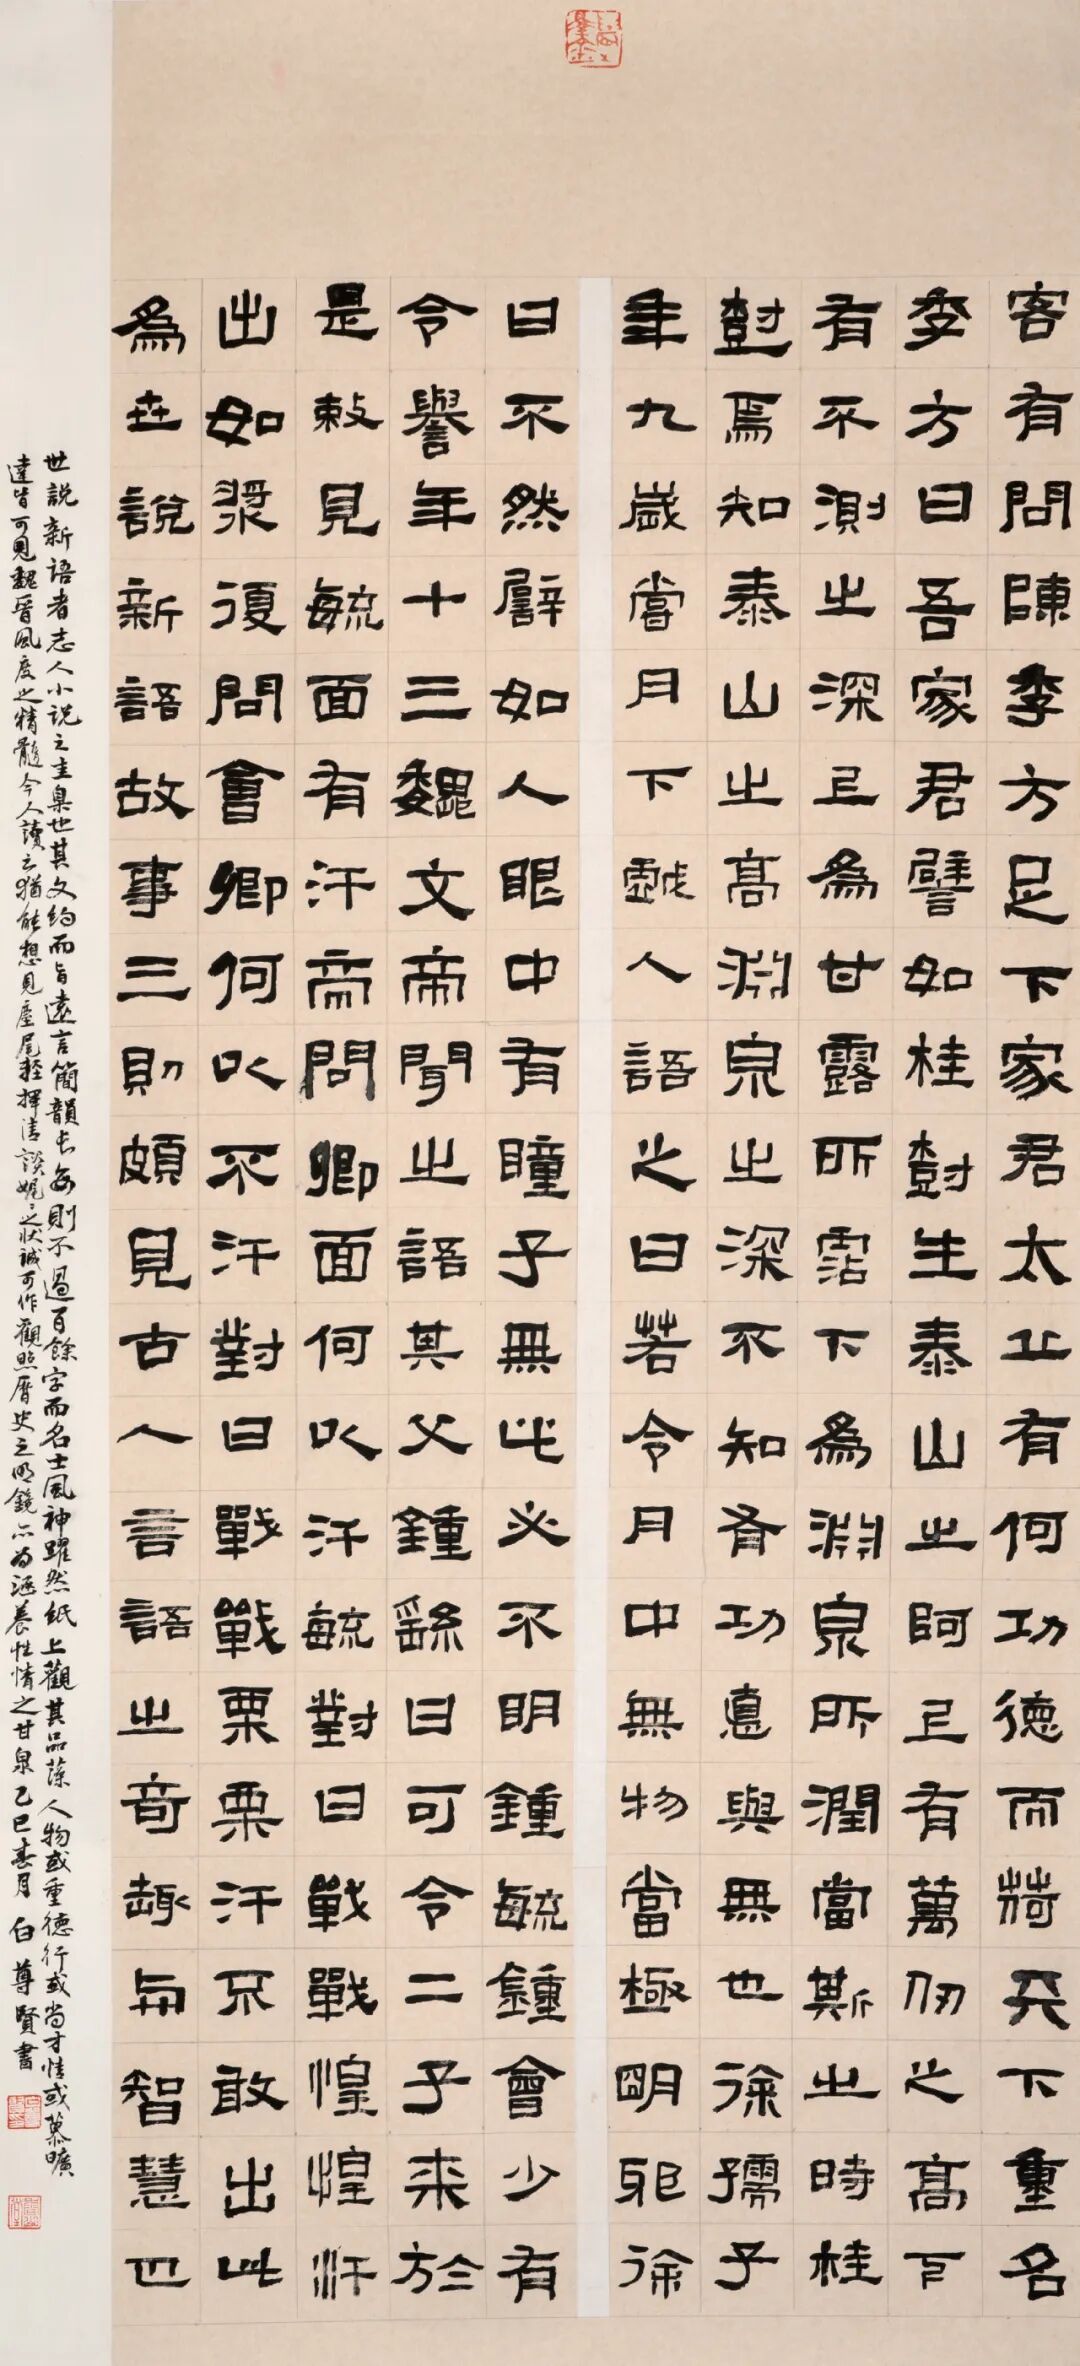 客有問陳季方足下家君太丘有何功德而荷天下重名
季方曰吾家君譬如桂樹生泰山之阿上有萬仞之高下
有不測之深上為甘露所霑下為淵泉所潤當斯之時桂
樹焉知泰山之高淵泉之深不知有功悳與無也徐孺子
年九歲嘗月下戲人語之曰若令月中無物當極明邪徐
曰不然譬如人眼中有瞳子無此必不明鍾毓鍾會少有
令譽年十三魏文帝聞之語其父鍾繇曰可令二子来於
是敕見毓面有汗帝問卿面何以汗毓對曰戰戰惶惶汗
出如漿復問會卿何以不汗對曰戰戰栗栗汗不敢出此
為世說新語故事三則頗見古人言語之奇趣与智慧也
世說新語者志人小说之圭臬也其文約而旨遠言簡韻长每則不過百餘字而名士風神躍然紙上觀其品藻人物或重德行或尚才情或慕曠
達皆可見魏晉風度之精髓今人讀之猶能想見麈尾輕揮清談娓娓之狀誠可作觀照曆史之明鏡亦为涵養性情之甘泉乙巳春月 白尊賢書